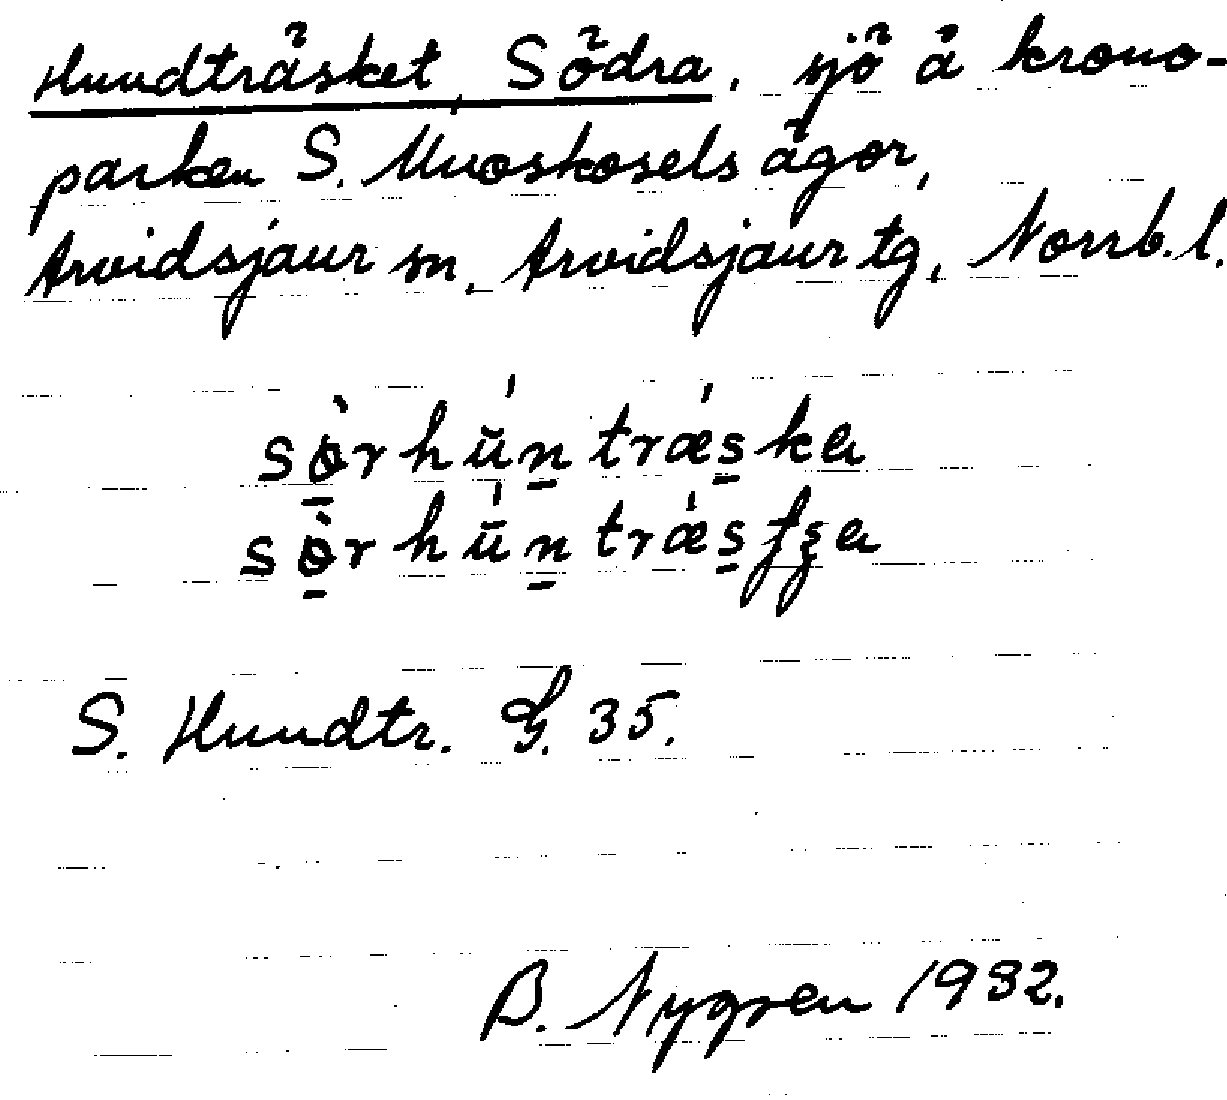 Hundträsket, Södra, sjö å krono-
parken S. Muoskosels ägor,
Arvidsjaur sn, Arvidsjaur tg, Norrb. l.
sø̱̀rhū́n̠trǽs̠ka
sø̱̀rhū́n̠trǽs̠ʃʂa
S. Hundtr. G. 35.
B. Nygren 1932.